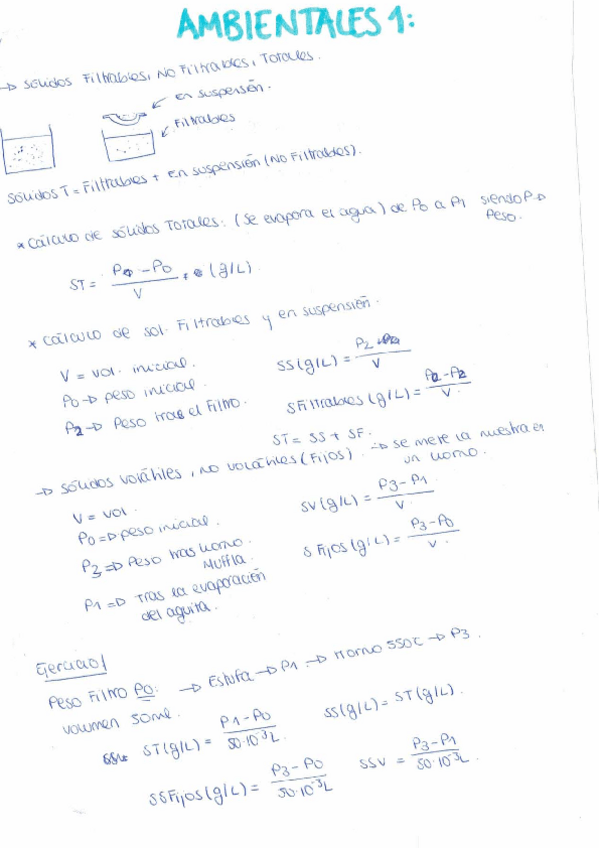 AMBIENTALES 1:
→ SÓLIDOS Filtrables, No Filtrables, Totales.
en suspensión.
Filtrables
SÓLIDOS T = Filtrables + En suspensión (No Filtrables).
* Cálculo de sólidos Totales: (Se evapora el agua) de P0 a P1 siendo P→
Peso.
ST = P1 - P0 / V (g/L)
* Cálculo de sol. Filtrables y en suspensión.
V = vol. inicial.
P0 → peso inicial.
P2 → Peso tras el Filtro.
SS (g/L) = P2 / V
SFiltrables (g/L) = P2 / V.
ST = SS + SF.
→ SÓLIDOS volátiles, no volátiles (Fijos). → se mete la muestra en
un horno.
V = vol.
P0 ⇒ peso inicial.
P3 ⇒ Peso tras horno
Muffla.
P1 ⇒ tras la evaporación
del aguita.
SV (g/L) = P3 - P1 / V.
S Fijos (g/L) = P3 - P0 / V.
Ejercicio 1
Peso Filtro P0: → Estufa → P1 → Horno 550ºC → P3.
volumen 50mL.
ST (g/L) = P1 - P0 / 50·10⁻³L
SS (g/L) = ST (g/L).
SSFijos (g/L) = P3 - P0 / 50·10⁻³L
SSV = P3 - P1 / 50·10⁻³L.